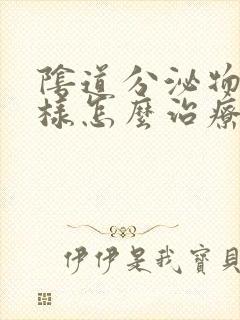 陰道分泌物
樣怎麼治療
伊伊是我寶貝